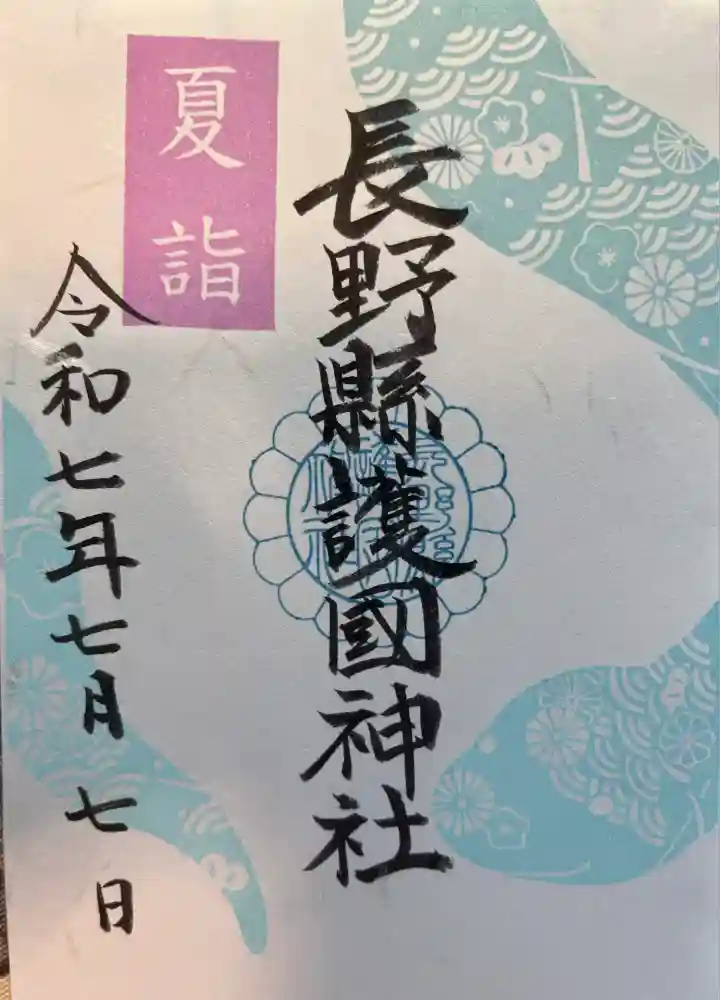 長野縣護國神社
夏詣
令和七年七月七日